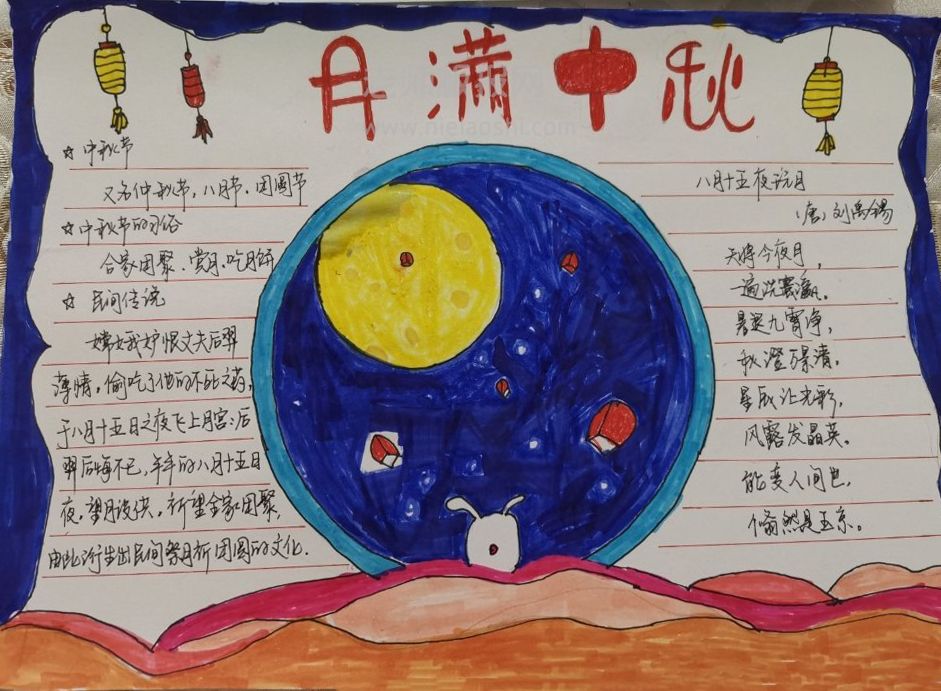 月满中秋
www.nielaoshi.com
☆ 中秋节
又名仲秋节，八月节、团圆节
☆中秋节的习俗
合家团聚、赏月、吃月饼
☆ 民间传说
嫦娥妒恨丈夫后羿
薄情。偷吃了他的不死之药，
于八月十五日之夜飞上月宫；后
羿后悔不已，年年的八月十五日
夜，望月设供，祈望全家团聚，
由此衍生出民间祭月祈团圆的文化.
八月十五夜玩月
（唐）刘禹锡
天将今夜月，
一遍洗寰瀛。
暑退九霄净，
秋澄万景清。
星辰让光彩，
风露发晶英。
能变人间世，
翛然是玉京。